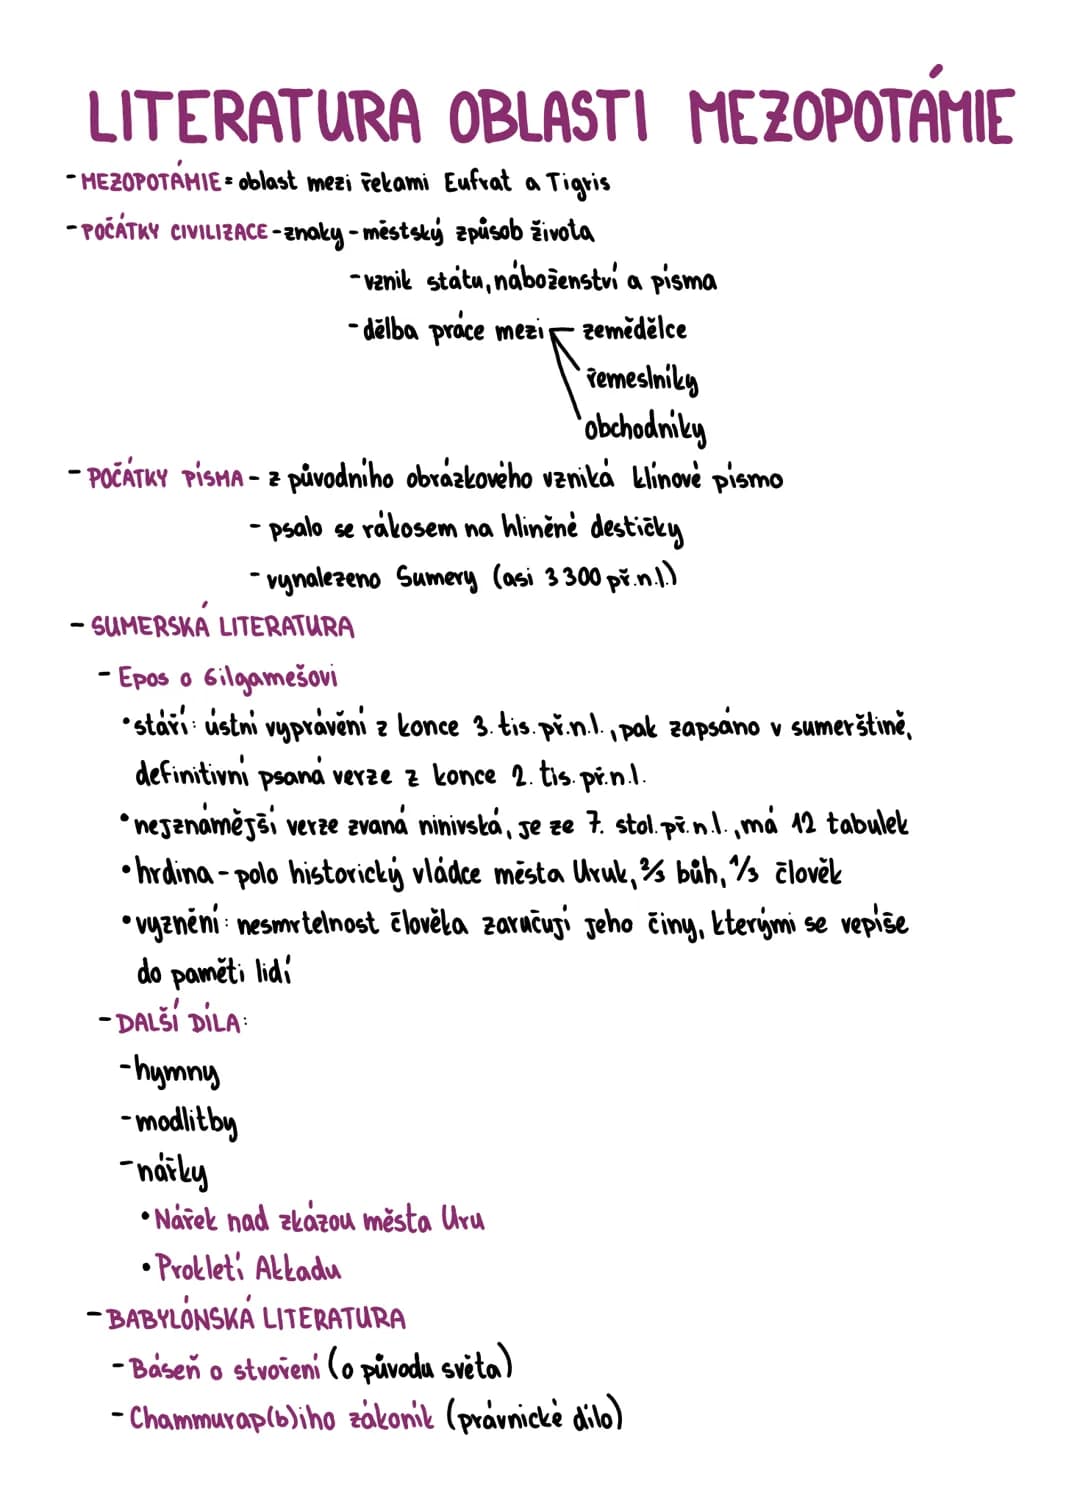 LITERATURA OBLASTI MEZOPOTÁMIE
- MEZOPOTÁMIE = oblast mezi řekami Eufrat a Tigris
- POČÁTKY CIVILIZACE - znaky - městský způsob života
- vznik státu, náboženství a písma
- dělba práce mezi zemědělce
řemeslníky
obchodníky
- POČÁTKY PÍSMA - z původního obrázkového vzniká klínové písmo
- psalo se rákosem na hliněné destičky
- vynalezeno Sumery (asi 3 300 př.n.l.)
- SUMERSKÁ LITERATURA
- Epos o Gilgamešovi
• stáří: ústní vyprávění z konce 3. tis. př.n.l., pak zapsáno v sumerštině,
definitivní psaná verze z konce 2. tis. př.n.l.
• nejznámější verze zvaná ninivská, je ze 7. stol. př.n.l., má 12 tabulek
• hrdina - polo historický vládce města Uruk, 2/3 bůh, 1/3 člověk
• vyznění: nesmrtelnost člověka zaručují jeho činy, kterými se vepíše
do paměti lidí
- DALŠÍ DÍLA:
- hymny
- modlitby
- nářky
• Nářek nad zkázou města Uru
• Prokletí Akkadu
- BABYLÓNSKÁ LITERATURA
- Báseň o stvoření (o původu světa)
- Chammurap(b)iho zákoník (právnické dílo)